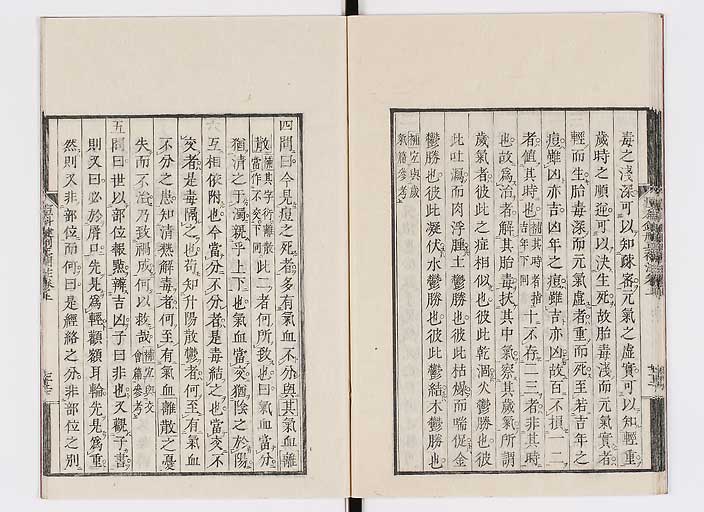 毒之淺深可以知疎密元氣之虛實可以知輕重
歲時之順逆可以決生死故胎毒淺而元氣實者
輕而生胎毒深而元氣虛者重而死至若吉年之
痘雖凶亦吉凶年之痘雖吉亦凶故百不損一二
者値其時也補其時者指吉年下同十不存二三者非其時
也故爲治者解其胎毒扶其中氣察其歲氣所謂
歲氣者彼此之症相似也彼此乾涸火鬱勝也彼
此吐瀉而肉浮腫土鬱勝也彼此枯燥而喘促金
鬱勝也彼此凝伏水鬱勝也彼此鬱結木鬱勝也
補宜與歲氣篇參考
四問曰今見痘之死者多有氣血不分與其氣血離
散補其字衍離散當作不交下同此二者何所致也曰氣血當分
猶清之于濁親乎上下也氣血當交猶陰之於陽
互相依附也今當分不分者是毒結之也當交不
交者是毒隔之也苟知升陽散鬱者何至有氣血
不分之患知清熱解毒者何至有氣血離散之憂
失而不治乃致禍成何以救哉補宜與交會篇參考
五問曰世以部位報點辨吉凶子曰非也又觀子書
則又曰必於唇口先見爲輕顴額耳輪先見爲重
然則又非部位而何曰是經絡之分非部位之別